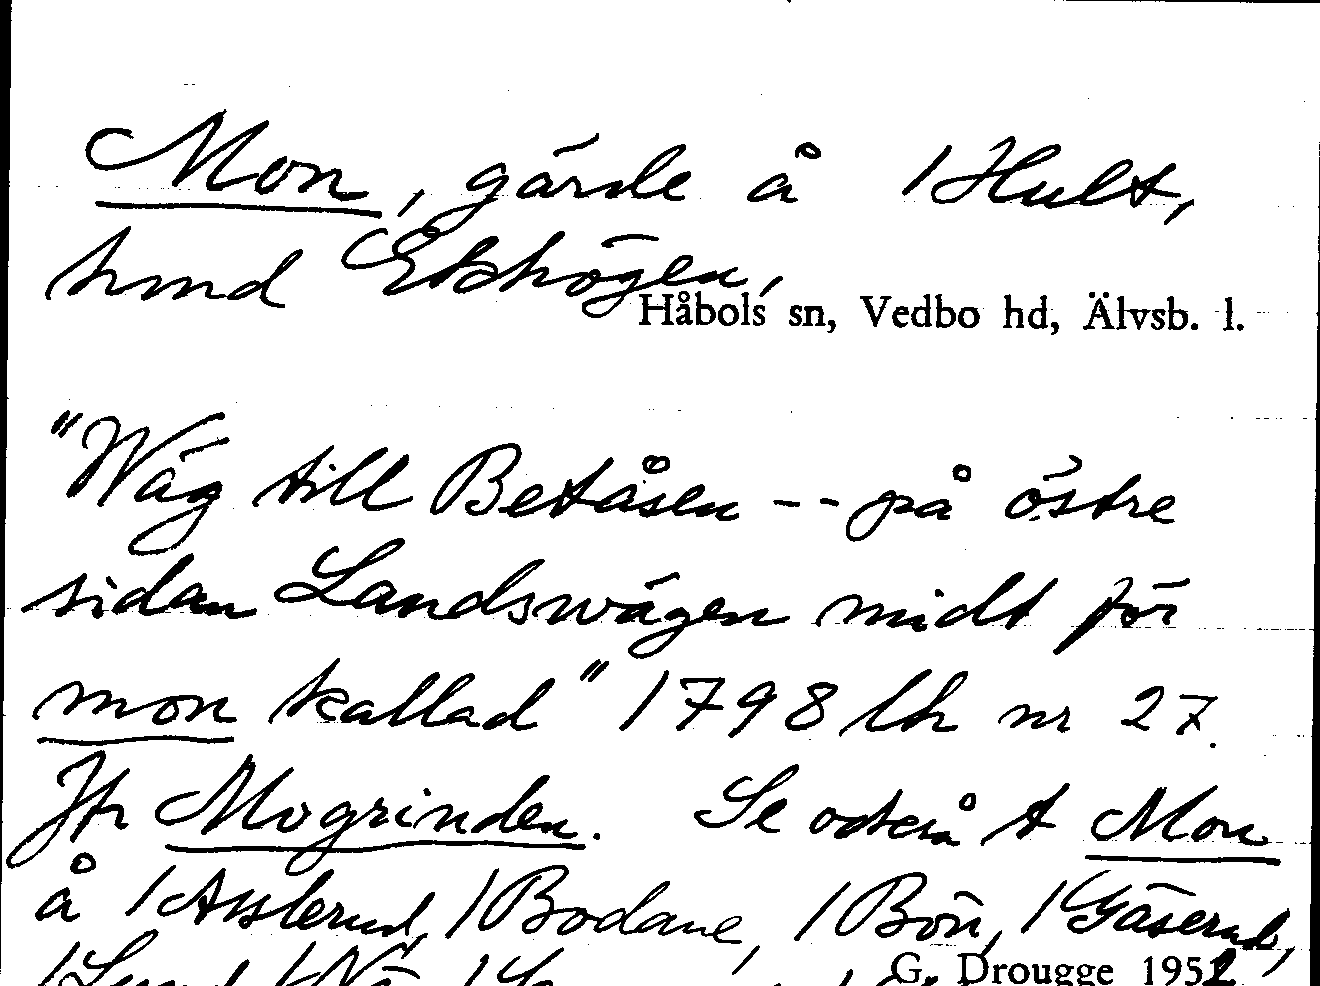 Mon, gärde å /Hult,
hmd Ekhögen,
Håbols sn, Vedbo hd, Älvsb. l.
"Wäg till Betåsen -- på östre
sidan Landswägen midt för
mon kallad" 1798 lh nr 27.
Jfr Mogrinden. Se också t Mon
å /Asslerud, /Bodane, /Bön, /Gäserud,
/Lund
G. Drougge 1952